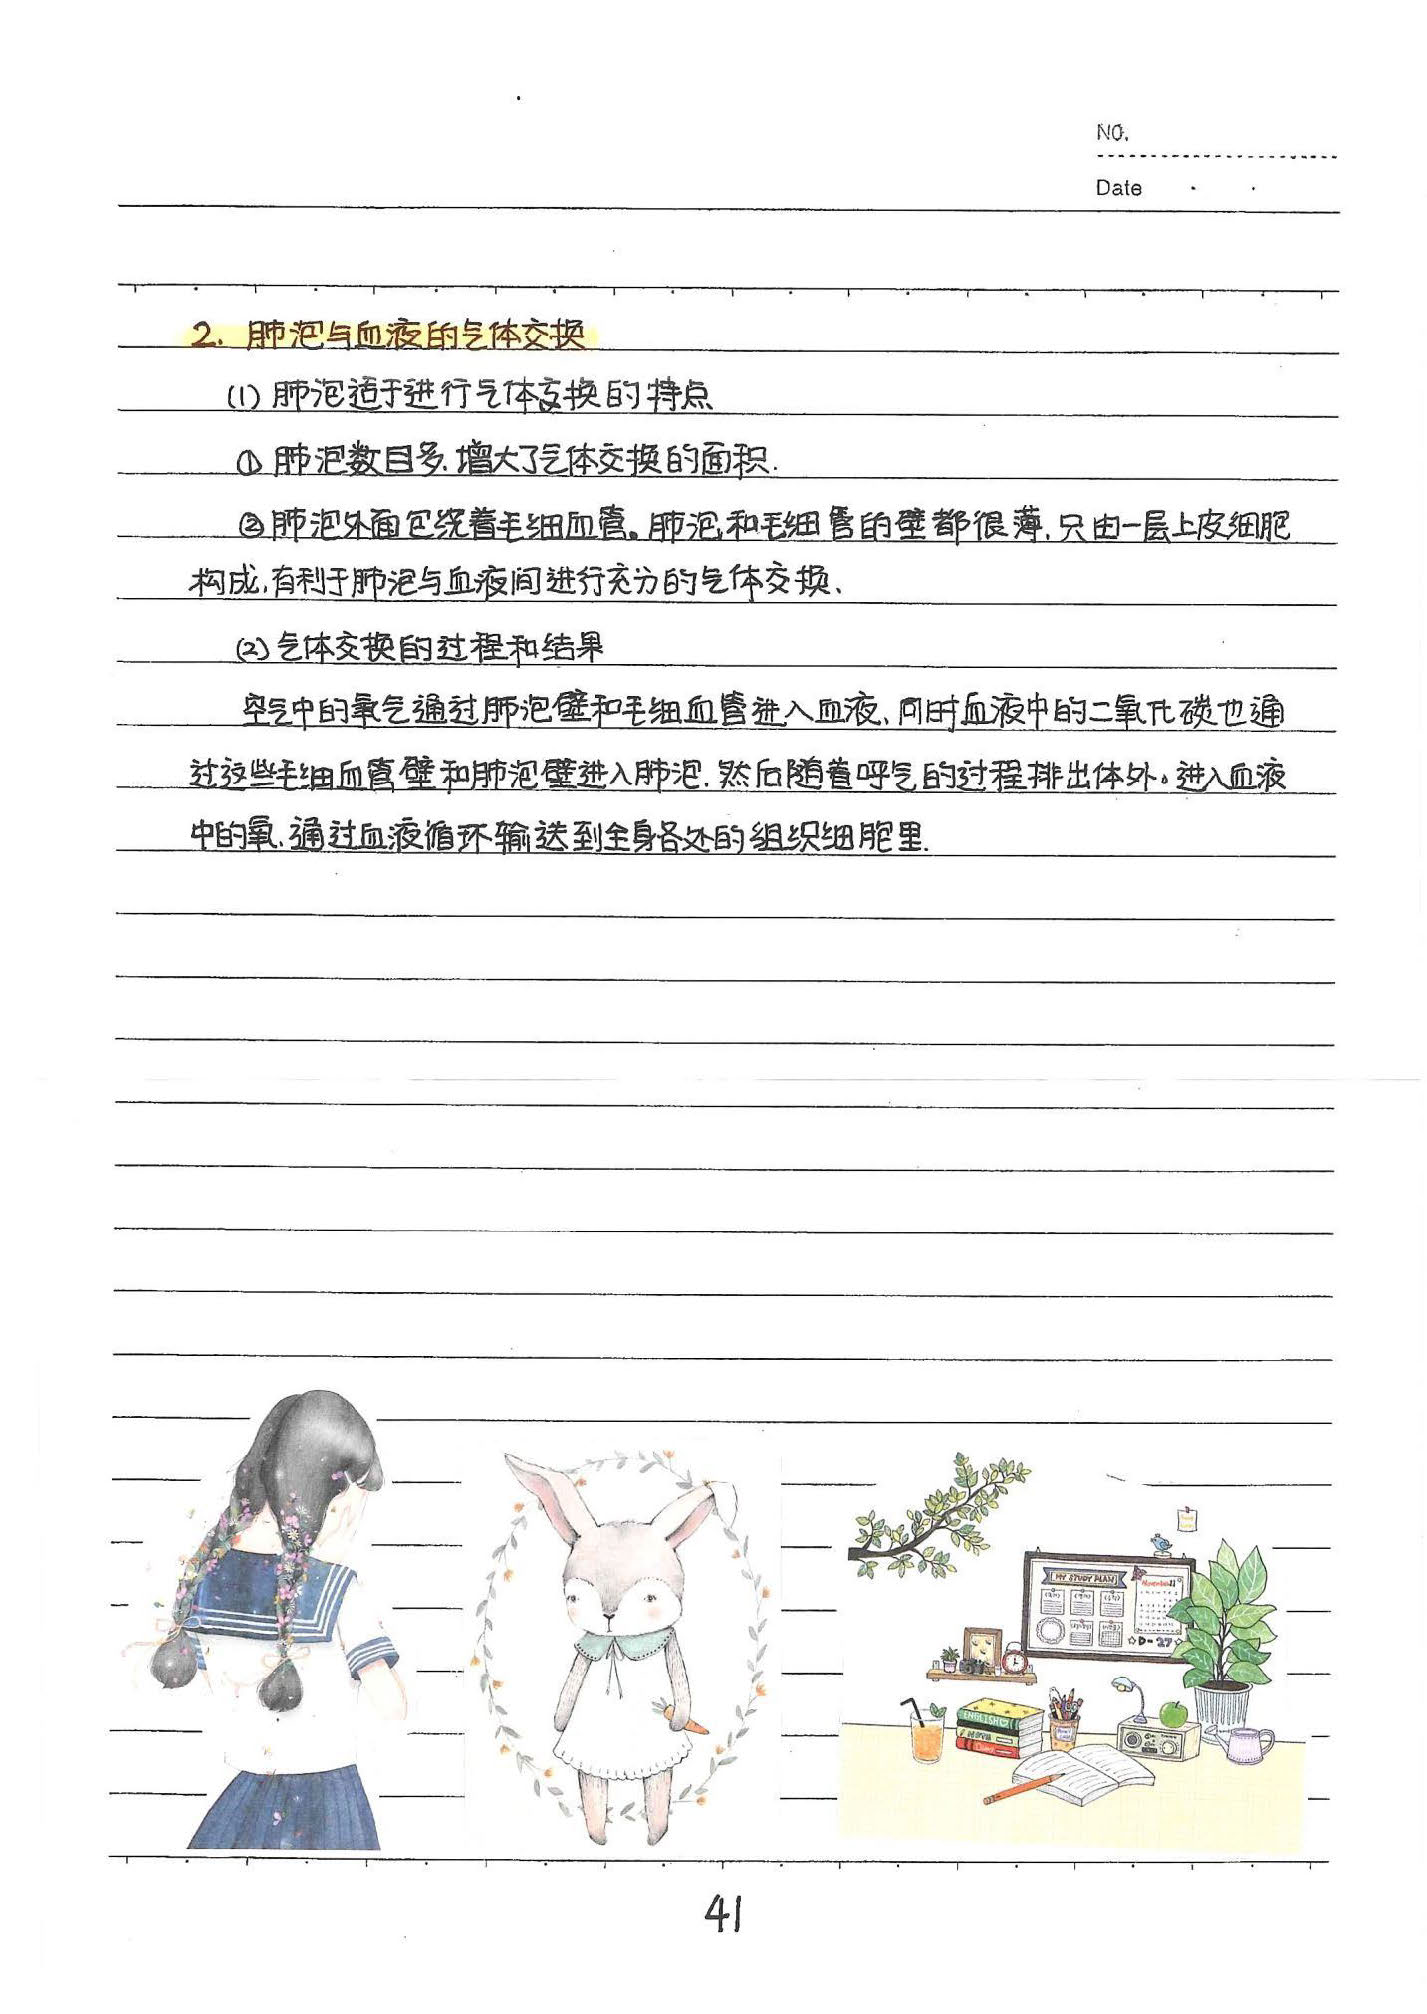 NO.
Date
2. 肺泡与血液的气体交换
(1) 肺泡适于进行气体交换的特点
① 肺泡数目多,增大了气体交换的面积.
② 肺泡外面包绕着毛细血管。肺泡和毛细管的壁都很薄,只由一层上皮细胞
构成,有利于肺泡与血液间进行充分的气体交换.
(2) 气体交换的过程和结果
空气中的氧气通过肺泡壁和毛细血管进入血液、同时血液中的二氧化碳也通
过这些毛细血管壁和肺泡壁进入肺泡.然后随着呼气的过程排出体外。进入血液
中的氧,通过血液循环输送到全身各处的组织细胞里.
MY STUDY PLAN
November
☆D-27☆
ENGLISH
NOTE
41